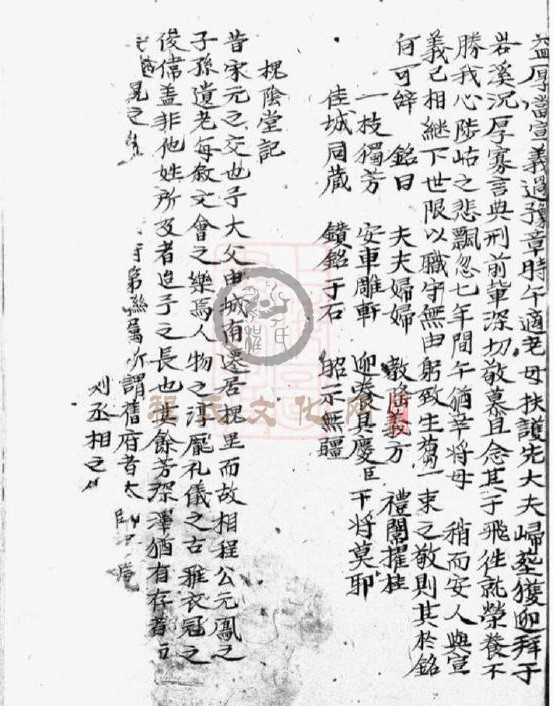 益厚當宣義過豫章時午適老母扶護先大夫婦塋獲迎拜于
岩溪沉厚寡言典刑前輩深切敬慕且念其子飛徃就榮養不
勝我心陟岵之悲飄忽七年間午猶幸將母 稍而安人與宣
義已相繼下世限以職守無由躬致生芻一束之敬則其於銘
何可辞 銘曰 夫夫婦婦 教隆義方 禮闈擢桂
一枝獨芳 安車雕軒 迎養具慶 干將莫耶
佳城同藏 鑱銘于石 昭示無疆
槐陰堂記
昔宋元之交也予大父由城南還居槐里而故相程公元鳳之
子孫遺老每敘文會之樂焉人物之淳龐礼儀之古雅衣冠之
俊偉盖非他姓所及者迨予之長也其餘芳深澤猶有存者
第縣屬所謂舊府者太
丞相之
程氏文化网